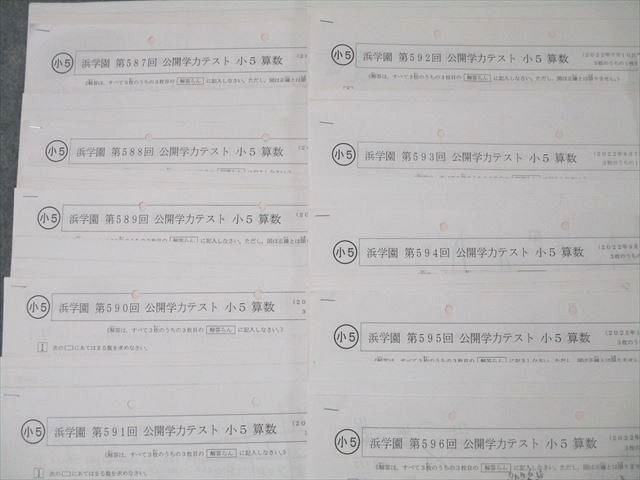 小5 浜学園 第587回 公開学力テスト 小5 算数
(解答は、すべて3枚のうちの3枚目の 解答らん に記入しなさい。ただし、図は正確とは限りません。)
小5 浜学園 第588回 公開学力テスト 小5 算数
小5 浜学園 第589回 公開学力テスト 小5 算数
小5 浜学園 第590回 公開学力テスト 小5 算数
(解答は、すべて3枚のうちの3枚目の 解答らん に記入しなさい。)
1 次の□にあてはまる数を求めなさい。
小5 浜学園 第591回 公開学力テスト 小5 算数
(解答は、すべて3枚のうちの3枚目の 解答らん に記入しなさい。)
1 次の□にあてはまる数を求めなさい。
小5 浜学園 第592回 公開学力テスト 小5 算数 (2022年7月10日
3枚のうちの1枚目
(解答は、すべて3枚のうちの3枚目の 解答らん に記入しなさい。ただし、図は正確とは限りません。)
小5 浜学園 第593回 公開学力テスト 小5 算数 (2022年8月
3枚のうちの1
小5 浜学園 第594回 公開学力テスト 小5 算数 (2022年9月
3枚のうち
小5 浜学園 第595回 公開学力テスト 小5 算数 (2022年
3枚のう
(解答は、すべて3枚のうちの3枚目の 解答らん に記入しなさい。ただし、図は正確とは限りま
小5 浜学園 第596回 公開学力テスト 小5 算数 (2022
3枚の
(解答は、すべて3枚のうちの3枚目の 解答らん に記入しなさい。ただし、図は正確とは限りま